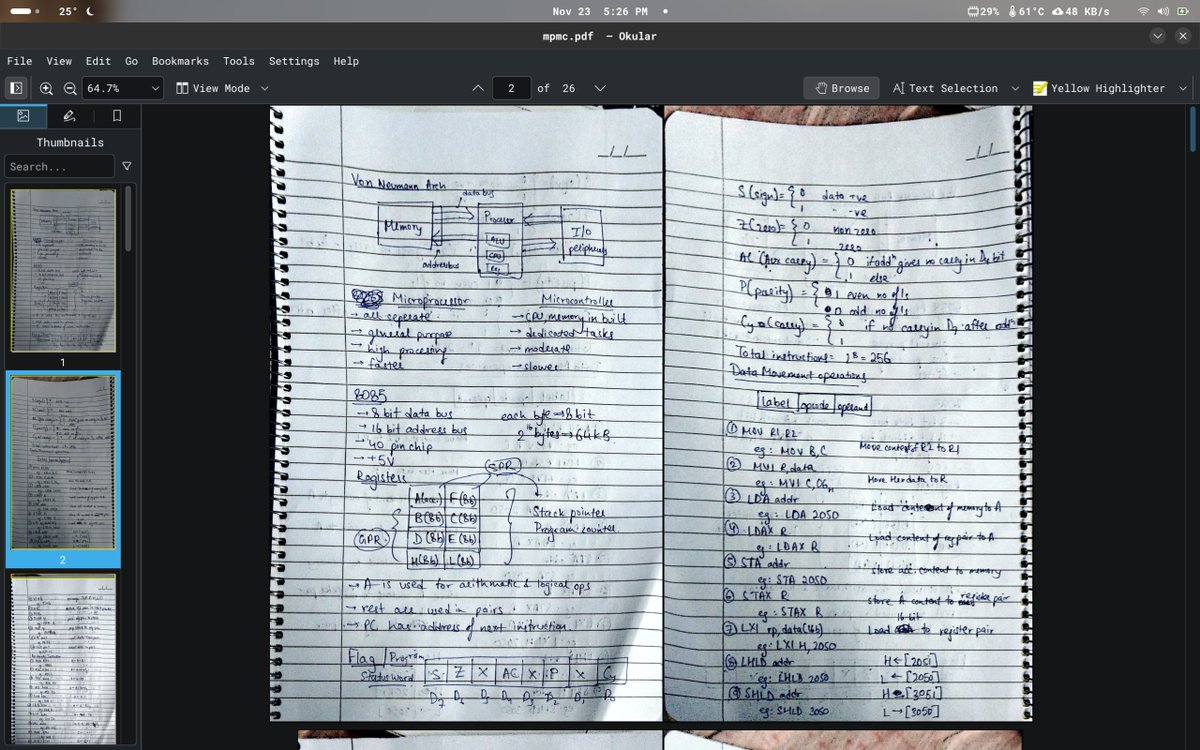 25°
Nov 23 5:26 PM
29% 61°C 48 KB/s
mpmc.pdf – Okular
File View Edit Go Bookmarks Tools Settings Help
64.7% View Mode
2 of 26
Browse Text Selection Yellow Highlighter
Thumbnails
Search...
1
2
Von Neumann Arch
data bus
Memory
Processor
ALU
CPU
Reg
I/O
peripherals
address bus
Microprocessor
→ all seperate
→ general purpose
→ high processing
→ faster
Microcontroller
→ CPU, memory in built
→ dedicated tasks
→ moderate
→ slower
8085
→ 8 bit data bus
→ 16 bit address bus
→ 40 pin chip
→ +5V
each byte → 8 bit
2¹⁶ bytes → 64kB
Registers
SPR
A(acc.) F(8b)
B(8b) C(8b)
D(8b) E(8b)
H(8b) L(8b)
GPR
Stack pointer
Program counter
→ A is used for arithmatic & logical ops
→ rest are used in pairs
→ PC has address of next instruction
Flag / Program
Status word
S Z X AC X P X Cy
S (sign) = { 0 data +ve
1 -ve
Z (zero) = { 0 non zero
1 zero
AC (Aux carry) = { 0 if addⁿ gives no carry in D₃ bit
1 else
P (parity) = { 1 even no of 1s
0 odd no of 1s
Cy (carry) = { 0 if no carry in D₇ after addⁿ
1
Total instructions = 2⁸ = 256
Data Movement operations
Label opcode operand
① MOV R1, R2
eg: MOV B, C Move content of R2 to R1
② MVI R, data
eg: MVI C, 06H Move Hex data to R
③ LDA addr
eg: LDA 2050 Load content of memory to A
④ LDAX R
eg: LDAX R Load content of reg pair to A
⑤ STA addr
eg: STA 2050 store acc. content to memory
⑥ STAX R
eg: STAX R store A content to register pair
⑦ LXI rp, data(16b)
eg: LXI H, 2050
16-bit
Load to register pair
⑧ LHLD addr H ← [2051]
eg: LHLD 2050 L ← [2050]
⑨ SHLD addr H → [3051]
eg: SHLD 3050 L → [3050]